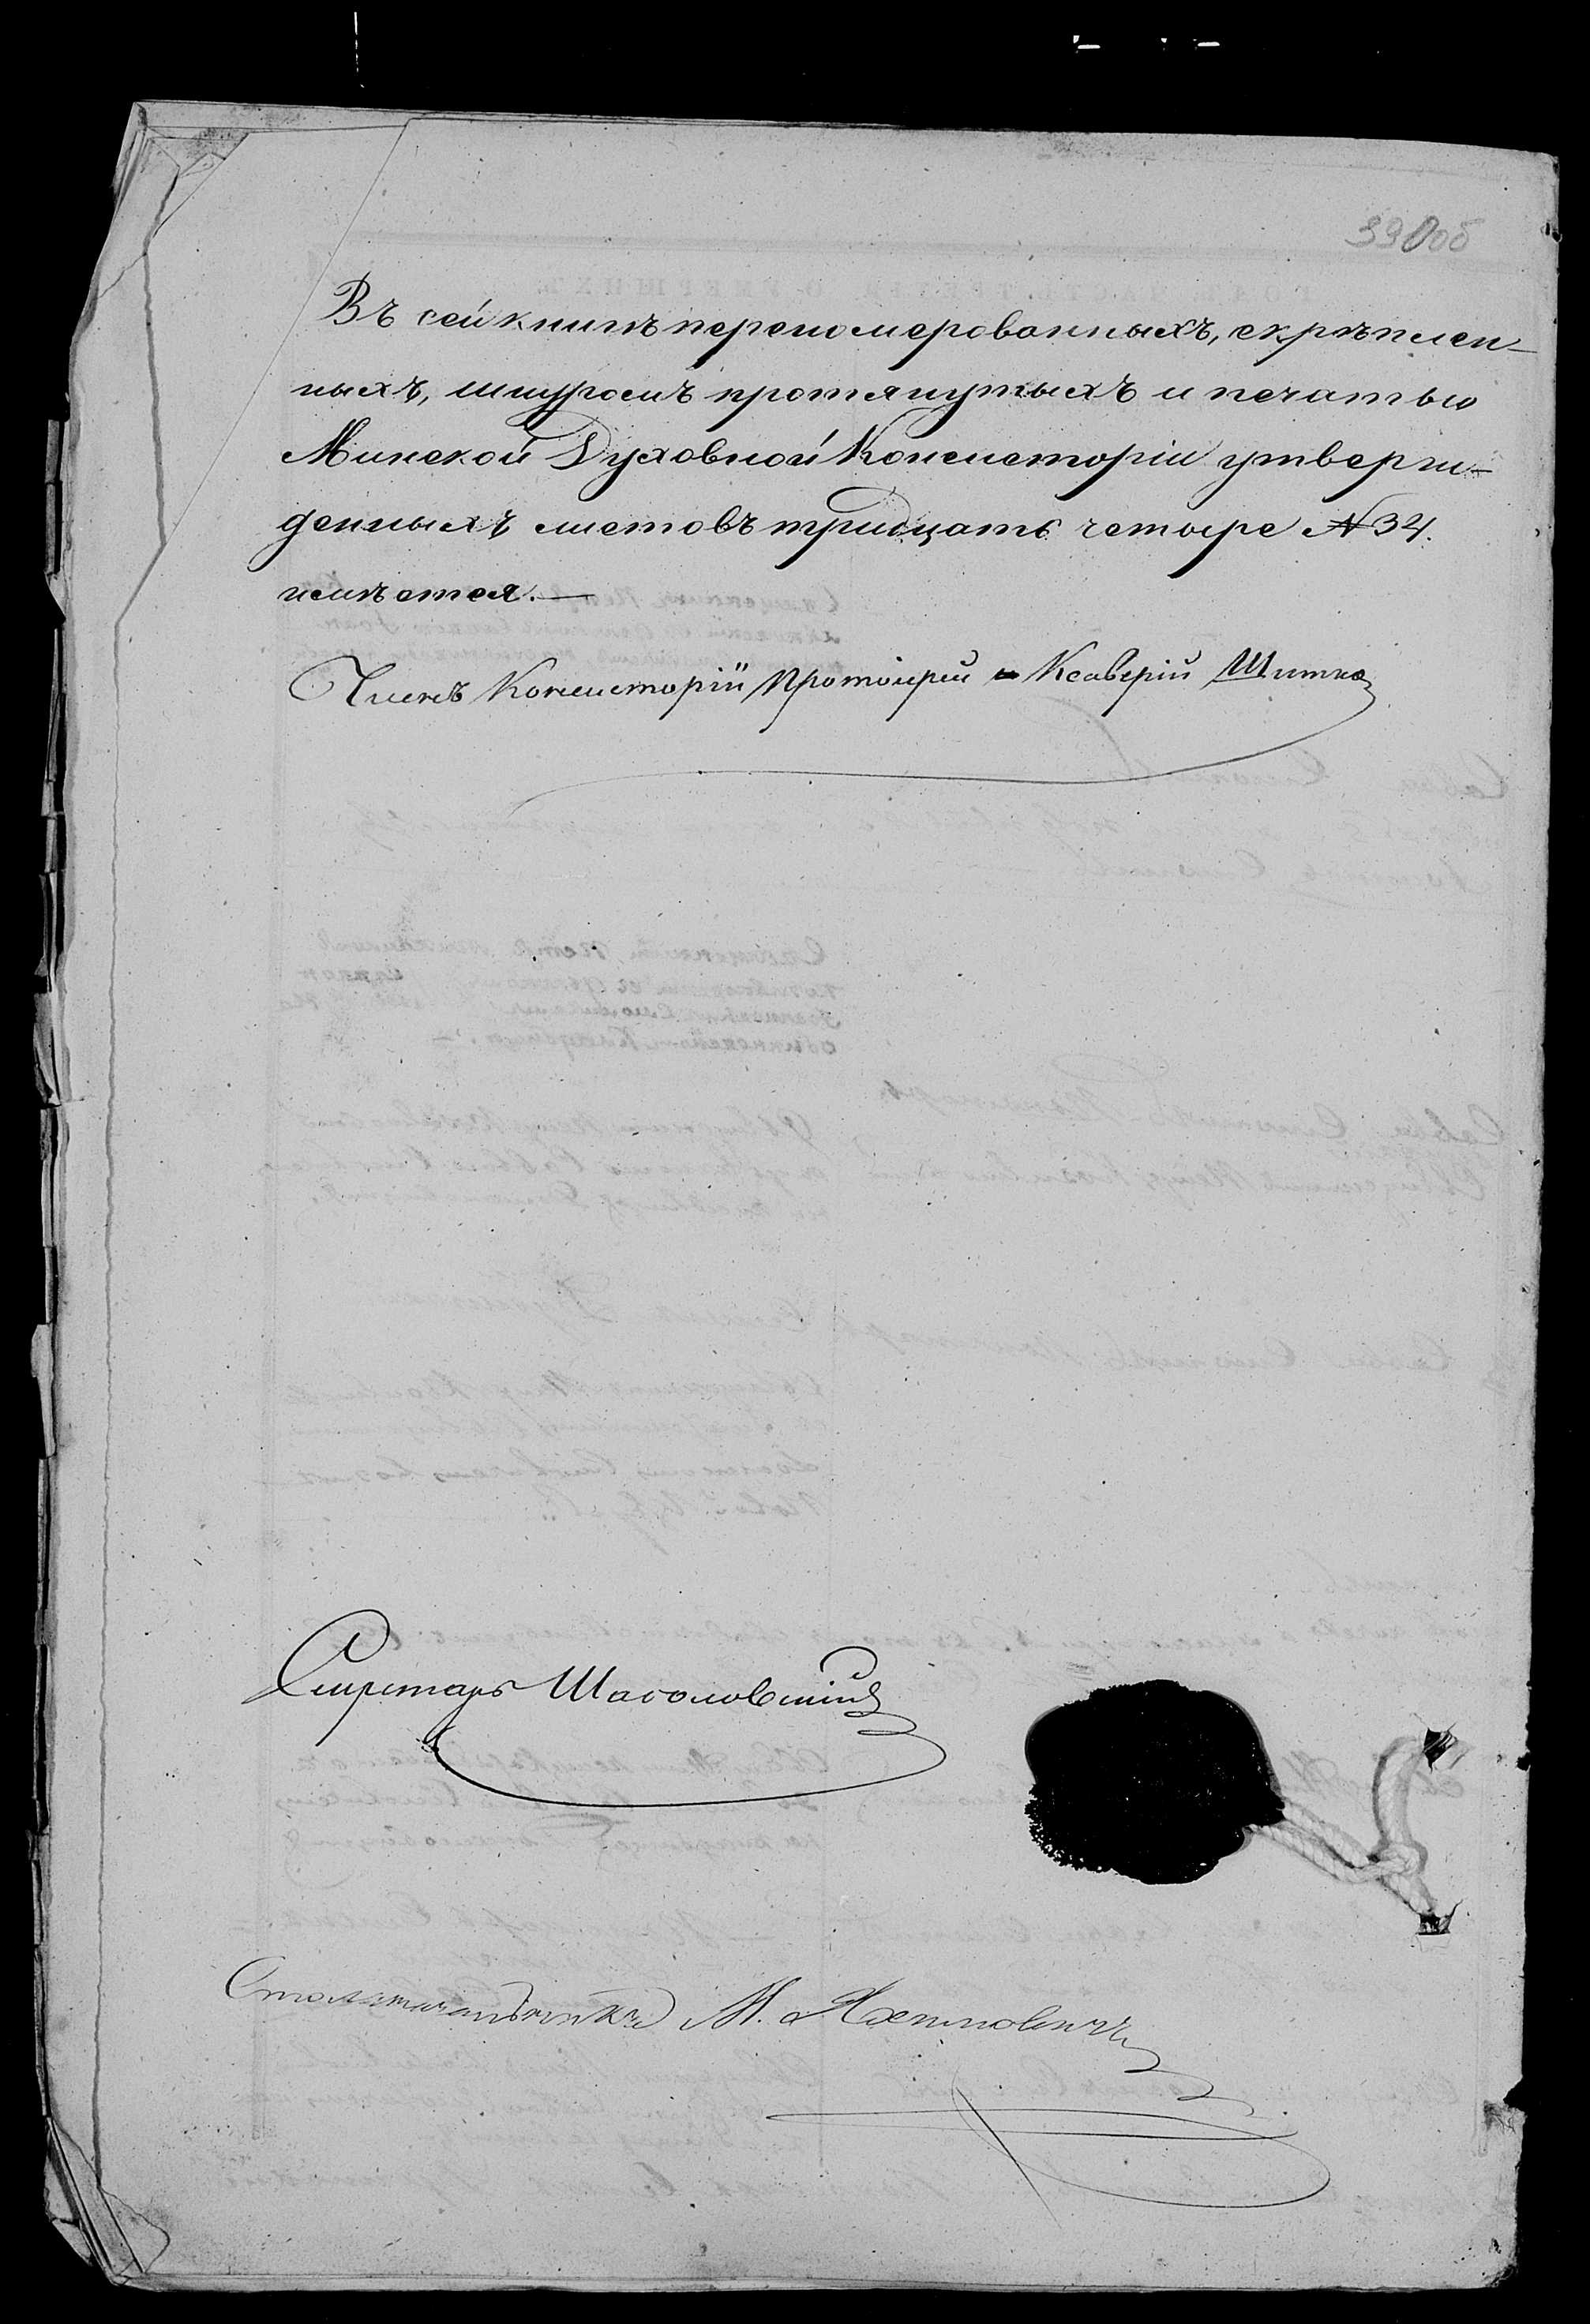 39 об
Въ сей книгѣ перенумерованныхъ, скрѣплен-
ныхъ, шнуромъ протянутыхъ и печатью
Минской Духовной Консисторіи утверж-
денныхъ листовъ тридцать четыре №34.
имѣется.—
Членъ Консисторіи Протоіерей Ксаверій Шитко
Секретарь
Столоначальникъ М.